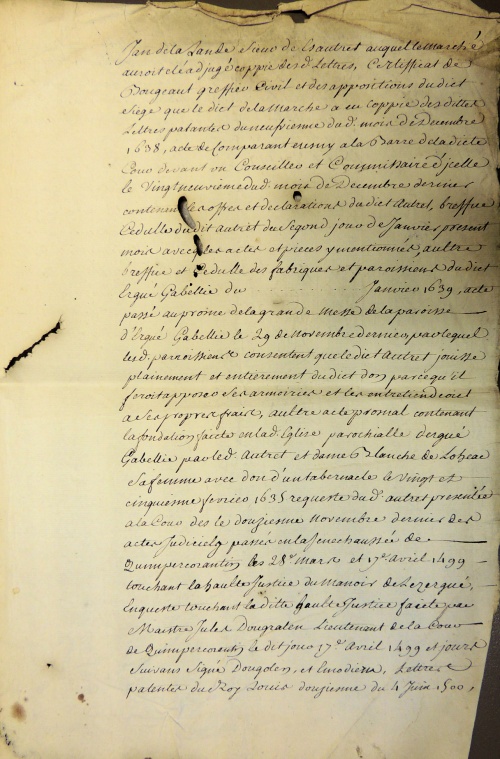 Jan de la Lande Sieur de Lesautret auquel le marché
auroit eté adjugé coppie des d. Lettres, Certifficat de
Bougeant greffier Civil et des appositions du dict
siege que le dict de la marche a eu coppie des dittes
Lettres patantes du neuffvienne du d. mois de Decembre
1638, acte de Comparant en un y a la Barre de la dicte
Cour devant un Conseiller et Commissaire d'jcelle
le Vingt neuvieme du d. mois de Decembre dernier
contenent les offres et declarations du dict Autret, breffue
Cedulle du dit autret du segond jour de Janvier present
mois avecq les actes et pieces y mentionnés, aultre
breffue et Cedulle des fabriques et paroissiens du dict
Ergué Gabellic du . . . . . . . . . . Janvier 1639, acte
passé au prosne de la grande messe de la paroisse
d'Ergué Gabellic le 29 de Novembre dernier, par lequel
les d. parroissiens consentent que le dict Autret jouisse
plainement et entierement du dict don parce qu'il
feroit apposer ses armoiries et les entretiendroit
a ses propres frais, aultre acte prosnal contenant
la fondation faicte en la d. Eglise parochialle d'ergué
Gabellic par le d. Autret et dame Blanche de Loheac
sa femme avec don d'un tabernacle le Vingt et
cinquienne febvrier 1635 requeste du d. autret presentée
a la Cour des le douzienne novembre dernier des
actes Judiciels passés en la senechaussée de
Quimpercorantin les 28e mars et 17e avril 1499
touchant la haulte Justice du Manoir de Lezergué,
Enqueste touchant la ditte haulte Justice faicte par
Maistre Jules Dougralen Lieutenant de la Cour
de Quimpercorantin le dit jour 17e avril 1499 et jours
suivans signé Dougolen, et Emodiern, Lettres
patentes du Roy Louis douzienne du 4 Juin 1500,